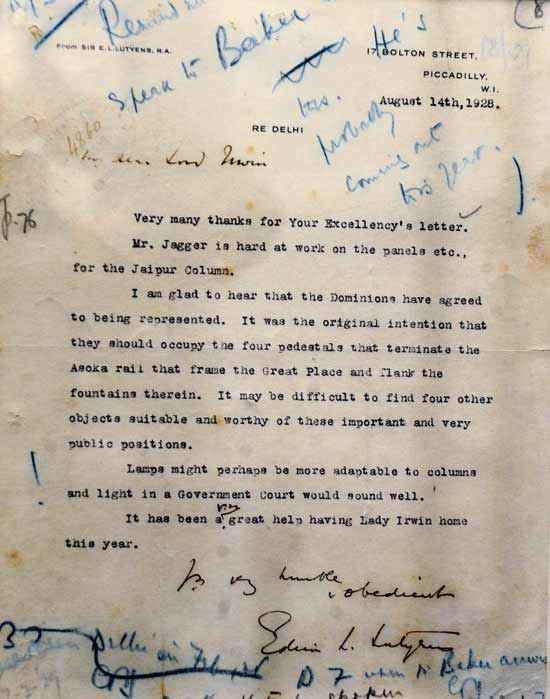 Remind
Speak to Baker
He's
this.
probably
coming out
this year.
8
From SIR E.L. LUTYENS, R.A.
17 BOLTON STREET,
PICCADILLY,
W.I.
August 14th, 1928.
RE DELHI
My dear Lord Irwin
Very many thanks for Your Excellency's letter.
Mr. Jagger is hard at work on the panels etc.,
for the Jaipur Column.
I am glad to hear that the Dominions have agreed
to being represented. It was the original intention that
they should occupy the four pedestals that terminate the
Asoka rail that frame the Great Place and flank the
fountains therein. It may be difficult to find four other
objects suitable and worthy of these important and very
public positions.
!
Lamps might perhaps be more adaptable to columns
and light in a Government Court would sound well.
very
It has been a great help having Lady Irwin home
this year.
obedient
Edwin L. Lutyens
Delhi in
to Baker